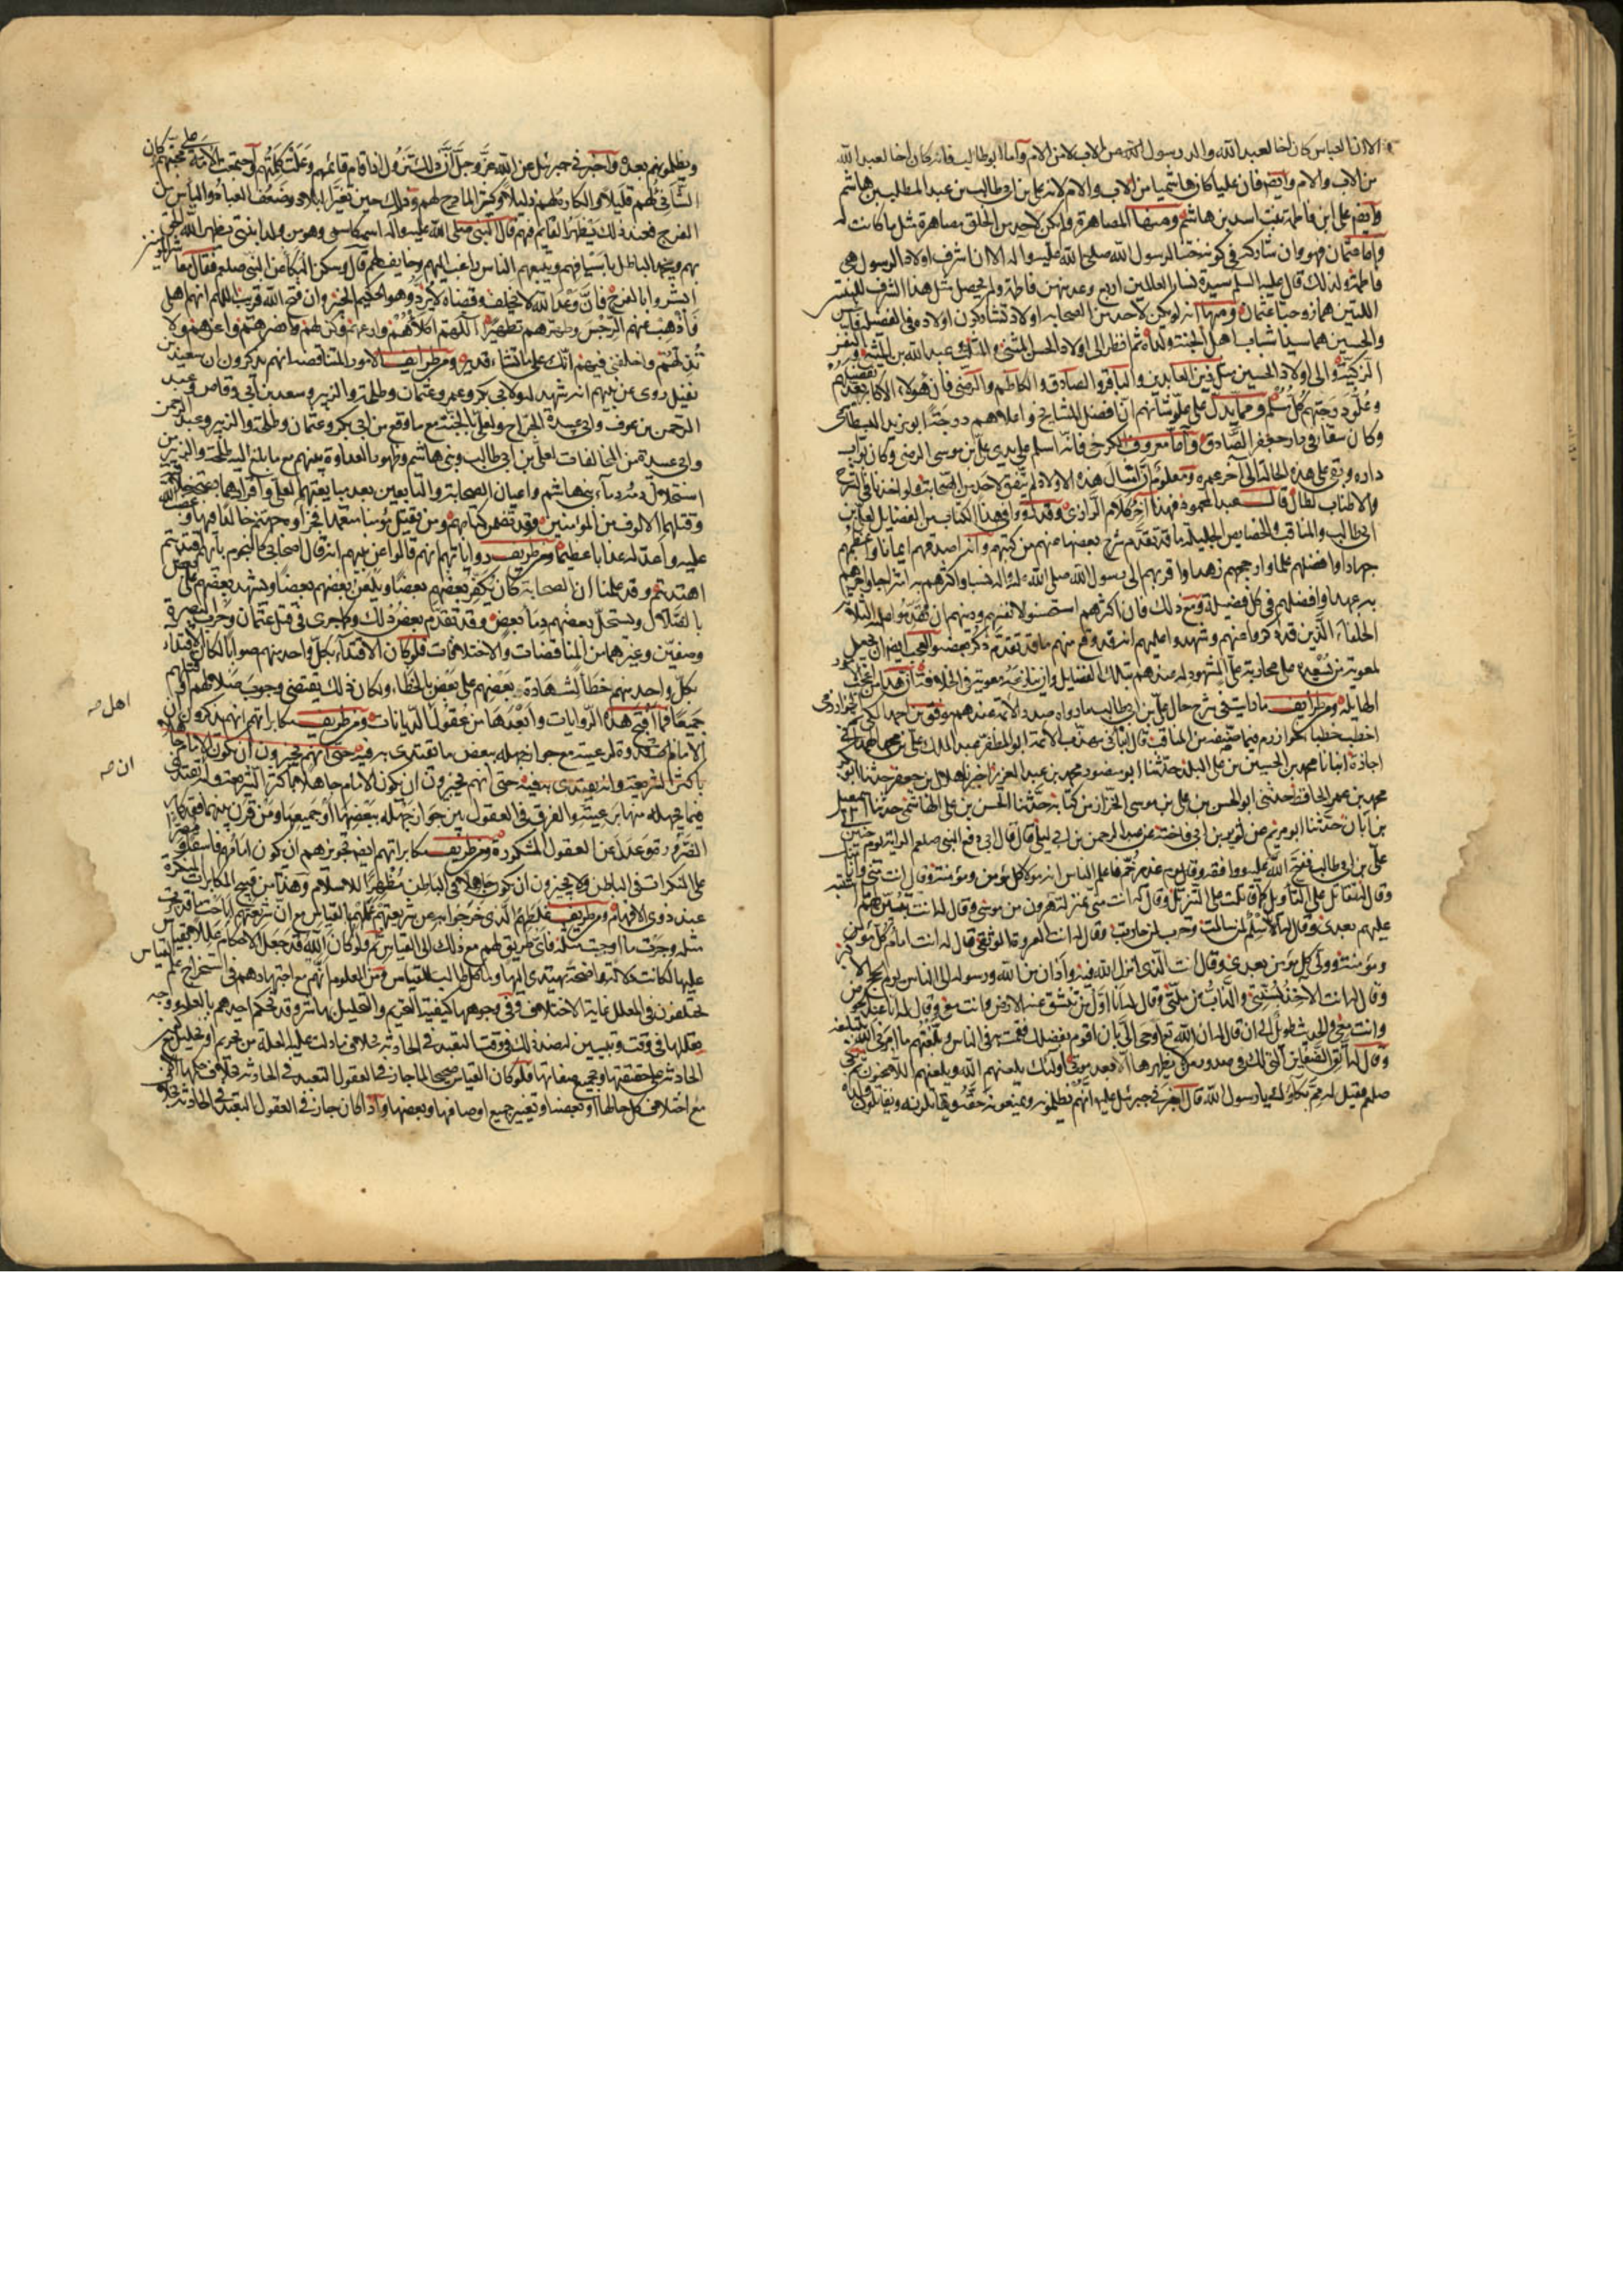 الا ان العباس كان اخا لعبد الله والد رسول الله من الاب لا من الام واما ابو طالب فانه كان اخا لعبد الله
من الاب والام وايضا فان عليا كان هاشميا من الاب والام لانه علي بن ابي طالب بن عبد المطلب بن هاشم
وايضا علي ابن فاطمة بنت اسد بن هاشم ومنها المصاهرة ولم يكن لاحد من الخلق مصاهرة مثل ما كانت له
واما عثمان فهو وان شاركه في كونه ختنا لرسول الله صلى الله عليه واله الا ان اشرف اولاد الرسول هي
فاطمة ولذلك قال عليه السلم سيدة نساء العالمين اربع وعد منهن فاطمة ولم يحصل مثل هذا الشرف للبنتين
اللتين هما زوجتا عثمان ومنها انه لم يكن لاحد من الصحابه اولاد تشارك اولاده في الفضيلة فالحسن
والحسين هما سيدا شباب اهل الجنة ولداه ثم انظر الى اولاد الحسن مثل الحسن المثنى والمثلث وعبد الله بن المثنى والنفس
الزكية والى اولاد الحسين مثل زين العابدين والباقر والصادق والكاظم والرضى فان هؤلاء الاكابر يقر بفضلهم
وعلو درجتهم كل مسلم ومما يدل على علو شانهم ان افضل المشايخ واعلاهم درجة ابو يزيد البسطامي
وكان سقاء في دار جعفر الصادق واما معروف الكرخي فانه اسلم على يدي علي بن موسى الرضى وكان بواب
داره وبقي على هذه الحالة الى آخر عمره ومعلوم ان امثال هذه الاولاد لم يتفق لاحد من الصحابة ولو اخذنا في الشرح
والاطناب لطال قال عبد المحمود فهذا آخر كلام الرازي وقد رووا في هذا الكتاب من الفضايل لعلي بن
ابي طالب والمناقب والخصايص الجليلة ما قد تقدم شرح بعضها عنهم من كتبهم وانه اصدقهم ايمانا واعظمهم
جهادا وافضلهم علما وارجحهم زهدا واقربهم الى رسول الله صلى الله عليه واله نسبا واكثرهم به امتزاجا
به عهدا وافضلهم في كل فضيلة ومع ذلك فان اكثرهم استحسنوا لانفسهم ودينهم ان يقدموا عليه الثلاثة
الخلفاء الذين قد ذكروا عنهم وشهدوا عليهم انه قد وقع منهم ما قد تقدم ذكر بعضه والعجب ايضا ان يجعل
لمعوية من تبعه على محاربة علي المشهود له عندهم بتلك الفضايل وان ينازعه معوية في الخلافة ان هذا من العجايب
الهايلة ومن طرايف ما رايت في شرح حال علي بن ابي طالب ما رواه صدر الائمة عندهم موفق بن احمد المكي ثم الخوارزمي
اخطب خطباء خوارزم فيما صنفه من المناقب قال انباني مهذب الائمة ابو المظفر عبد الملك بن علي بن محمد الهمداني
اجازة انبانا محمد بن الحسين بن علي البزاز حدثنا ابو منصور محمد بن عبد العزيز اخبرنا هلال بن جعفر حدثنا ابو بكر
محمد بن عمر الحافظ حدثني ابو الحسن بن علي بن موسى الخزاز من كتابه حدثنا الحسن بن علي الهاشمي حدثنا اسمعيل
بن ابان حدثنا ابو مريم عن ثوير بن ابي فاخته عن عبد الرحمن بن ابي ليلى قال قال ابي دفع النبي صلعم الراية يوم خيبر الى
علي بن ابي طالب ففتح الله عليه ووقفه يوم غدير خم فاعلم الناس انه مولا كل مؤمن ومؤمنة وقال انت مني وانا منك
وقال له تقاتل على التاويل كما قاتلت على التنزيل وقال له انت مني بمنزلة هرون من موسى وقال له انت تبين لهم ما اشتبه
عليهم بعدي وقال له انا سلم لمن سالمت وحرب لمن حاربت وقال له انت العروة الوثقى وقال له انت امام كل مؤمن
ومؤمنة وولي كل مؤمن بعدي وقال انت الذي انزل الله فيه واذان من الله ورسوله الى الناس يوم الحج الاكبر
وقال له انت الاخذ بسنتي والذاب عن ملتي وقال له انا اول من تنشق عنه الارض وانت معي وقال له انا عند الحوض
وانت معي والحديث طويل الى ان قال له ان الله تع اوحى الى بان اقوم بفضلك فقمت به في الناس وبلغتهم ما امرني الله بتبليغه
وقال له اتق الضغاين التي لك في صدور من لا يظهرها الا بعد موتي اولئك يلعنهم الله ويلعنهم اللاعنون ثم بكى
صلعم فقيل له مم بكاؤك يا رسول الله قال اخبرني جبرئيل عليه انهم يظلمونه ويمنعونه حقه ويقاتلونه ويقتلون ولده
ويظلمونهم بعده واخبرني جبرئيل عن الله عز وجل ان ذلك يزول اذا قام قائمهم وعلت كلمتهم واجتمعت الامة على محبتهم وكان
الشاني لهم قليلا والكاره لهم ذليلا وكثر المادح لهم وذلك حين تغير البلاد وضعف العباد والياس من
الفرج فعند ذلك يظهر القائم فيهم قال النبي صلى الله عليه واله اسمه كاسمي وهو من ولد ابنتي يظهر الله الحق
بهم ويخمد الباطل باسيافهم ويتبعهم الناس راغب اليهم وخايف لهم قال وسكن البكاء عن النبي صلعم فقال معاشر المؤمنين
ابشروا بالفرج فان وعد الله لا يخلف وقضاه لا يرد وهو الحكيم الخبير وان فتح الله قريب اللهم انهم اهلي
فاذهب عنهم الرجس وطهرهم تطهيرا اللهم اكلأهم وارعهم وكن لهم وانصرهم واعزهم ولا
تذلهم واخلفني فيهم انك على ما تشاء قدير ومن طرايف الامور المتناقضة انهم يذكرون ان سعيد بن
نفيل روى عن نبيهم انه شهد له ولابي بكر وعمر وعثمان وطلحة والزبير وسعد بن ابي وقاص وعبد
الرحمن بن عوف وابي عبيدة الجراح ولعلي بالجنة مع ما وقع من ابي بكر وعثمان وطلحة والزبير وعبد الرحمن
وابي عبيدة من المخالفات لعلي بن ابي طالب وبني هاشم وظهور العداوة بينهم مع ما بلغ اليه طلحة والزبير من
استحلال دمه دماء بني هاشم واعيان الصحابة والتابعين بعد مبايعتهما لعلي
وقتلهما الالوف من المؤمنين وقد تضمن كتابهم ومن يقتل مؤمنا متعمدا فجزاؤه جهنم خالدا فيها وغضب الله
عليه واعد له عذابا عظيما ومن طريف رواياتهم انهم قالوا عن نبيهم انه قال اصحابي كالنجوم بايهم اقتديتم
اهتديتم وقد علمنا ان الصحابة كان يكفر بعضهم بعضا ويلعن بعضهم بعضا ويشهد بعضهم على بعض
بالضلال ويستحل بعضهم دماء بعض وقد تقدم بعض ذلك وكما جرى في قتل عثمان وحرب البصرة
وصفين وغيرهما من المناقضات والاختلافات فلو كان الاقتداء بكل واحد منهم صوابا لكان الاقتداء
بكل واحد منهم خطأ لشهادة بعضهم على بعض بالخطاء ولكان ذلك يقتضي وجوب ضلالهم
جميعا فما اقبح هذه الروايات وابعدها من عقول اهل الديانات ومن طريف مكابراتهم انهم يذكرون
الامام قدوة لرعيته مع جواز جهله ببعض ما يقتدى به فيه حتى انهم يجيزون ان يكون الامام جاهلا
باكثر الشريعة وانه يقتدى به فيه حتى انهم يجيزون ان يكون الامام جاهلا باكثر الشريعة
فيما يجهله منها برعيته والفرق في العقول بين جواز جهله ببعضها او جميعها ومن فرق بينهما فقد كابر
الضرورة وعدل عن العقول المشكورة ومن طريف مكابراتهم ايضا تجويزهم ان يكون امامهم فاسقا
على المنكرات في الباطن ولا يجيزون ان يكون جاهلا في الباطن مظهرا للاسلام وهذا من قبيح المكابرات المنكرة
عند ذوي الافهام ومن طريف غلطهم الذي خرجوا به عن شريعتهم عملهم بالقياس مع ان شريعتهم اباحت
مثله وحرمت ما اوجبت مثله فاي طريق لهم مع ذلك الى القياس ثم ولو كان الله قد جعل للاحكام عللا يقيس
عليها لكانت دلالتها واضحة يهتدي اليها كل طالب للقياس ومن المعلوم انهم مع اجتهادهم في استخراج علم القياس
مختلفون في العلل غاية الاختلاف وفي وجوهها كيفية التحريم والتحليل بها
مع اختلاف كل حالها او بعضها وتغيير جميع اوصافها وبعضها واذا كان جاز في العقول التعبد في الحادثة
اهل صه
ان صه